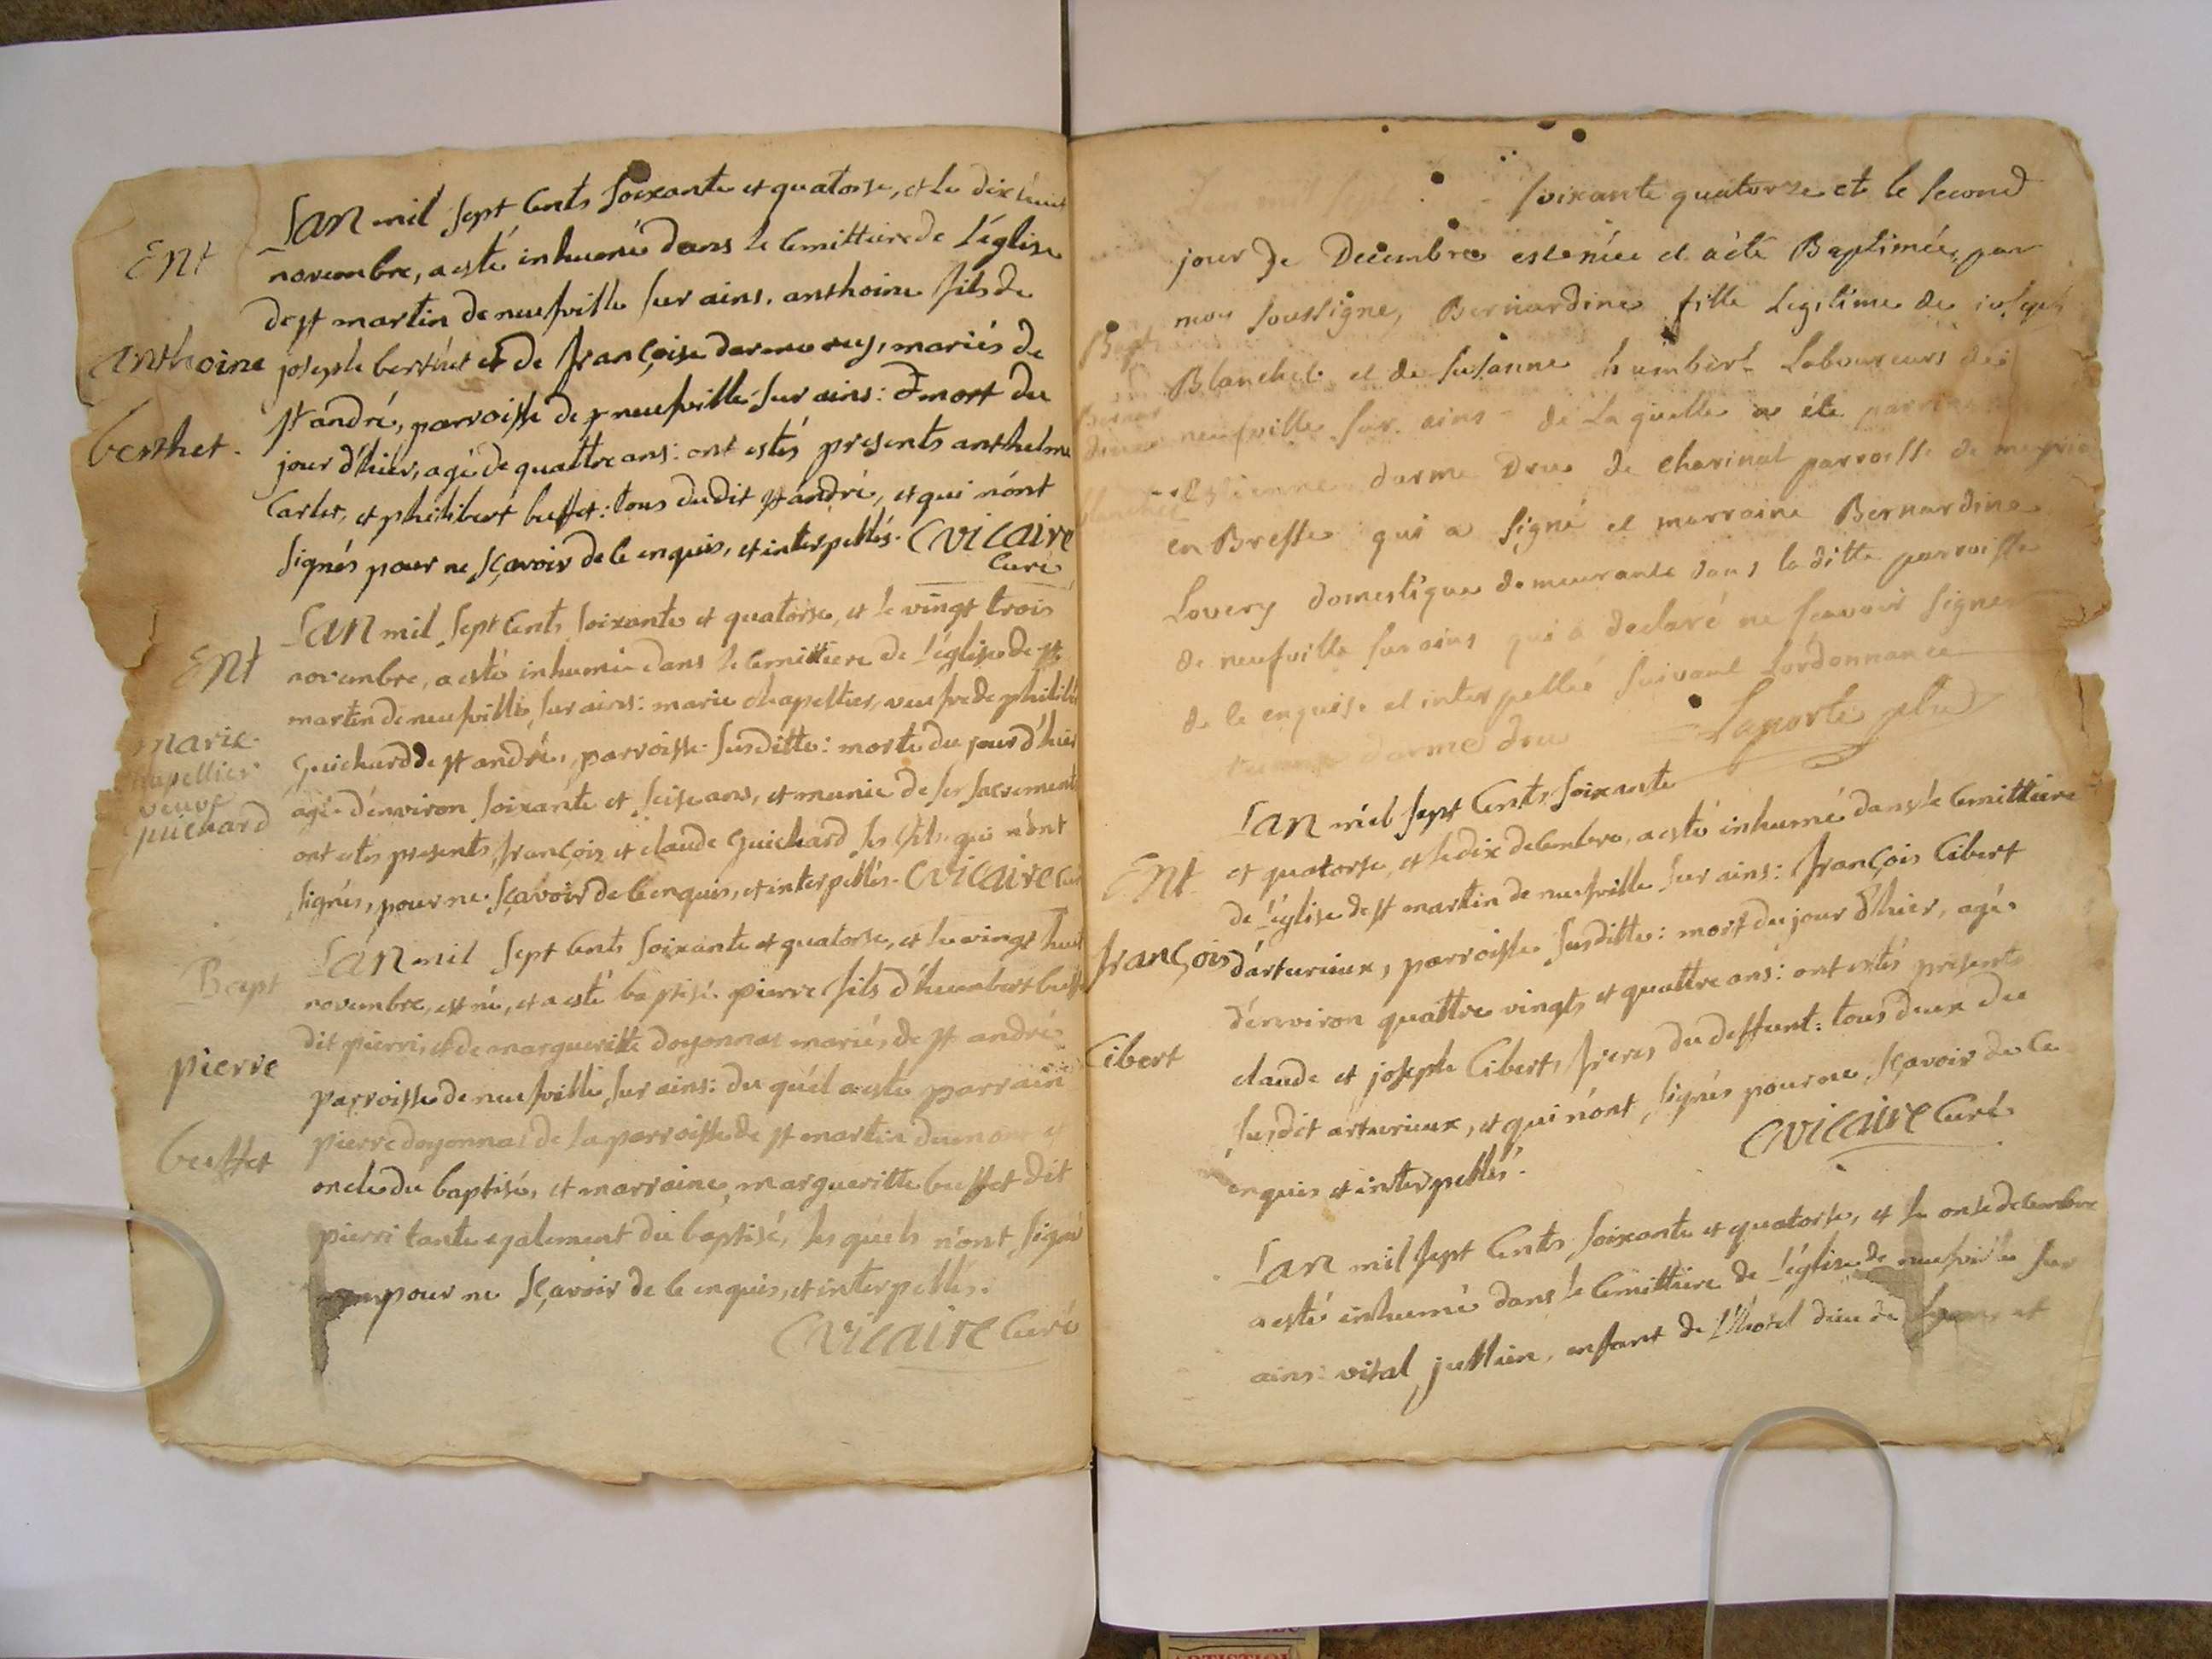 Ent
Anthoine
berthet.
Lan mil sept Cents soixante et quatorse, et le dix huit
novembre, a esté inhumé dans le Cemittiere de L'église
de st martin de neufville sur ains. anthoine fils de
joseph berthet et de françoise darmeres, mariés de
st andré, parroisse de neufville sur ains: mort du
jour d'hier, agé de quattre ans: ont estés presents anthelme
Carlet, et philibert buffet: tous dudit st andré, et qui n'ont
signés pour ne sçavoir de ce enquis, et interpellés. C Vicaire
Curé
Ent
marie
chapellier
veuve
guichard
Lan mil sept Cents soixante et quatorse, et le vingt trois
novembre, a esté inhumée dans le Cemittiere de L'église de st
martin de neufville sur ains: marie chapellier, veufve de philib
guichard de st andré, parroisse susditte: morte du jour d'hier
agée d'environ soixante et seise ans, et munie de ses sacrements
ont estes presents, françois et claude guichard ses fils qui n'ont
signés, pour ne sçavoir de ce enquis, et interpellés. C Vicaire Curé
Bapt
pierre
buffet
Lan mil sept Cents soixante et quatorse, et le vingt huit
novembre, est né, et a esté baptisé pierre fils d'humbert buffet
dit pierri, et de margueritte doyonnas mariés de st andré
parroisse de neufville sur ains: du quel a esté parrain
pierre doyonnas de la parroisse de st martin dumont et
oncle du baptisé, et marraine, margueritte buffet dit
pierri tante egalement du baptisé, les quels n'ont signé
pour ne sçavoir de ce enquis, et interpellés.
C Vicaire Curé
Bapt
Bernar
dine
blanchet
soixante quatorze et le second
jour de Decembre est née et a été Baptimée, par
moy soussigne, Bernardine fille Legitime de joseph
Blanchet et de susanne humbert Laboureurs de
neufville sur ains de Laquelle a éte parrain
Estienne darme Dru de Charinal parroisse de
en Bresse qui a signé et marraine Bernardine
Lovery domestique demeurante dans la ditte parroisse
de neufville sur ains qui a declaré ne scavoir signer
de ce enquise et interpellée suivant Lordonnance
darme dru Laporte ptre
Ent
françois
Cibert
Lan mil sept Cents soixante
et quatorse, et le dix decembre, a esté inhumé dans le Cemittiere
de L'église de st martin de neufville sur ains: françois Cibert
d'arturieux, parroisse susditte: mort du jour d'hier, agé
d'environ quattre vingts et quattre ans: ont estés presents
claude et joseph Cibert, freres du deffunt: tous deux du
susdit arturieux, et qui n'ont signés pour ne sçavoir de ce
enquis et interpellés.
C Vicaire Curé
Lan mil sept Cents soixante et quatorse, et le onse decembre
a esté inhumé dans le Cemittiere de L'église de neufville sur
ains: vital jullien, enfant de L'hotel dieu de Lyon, et